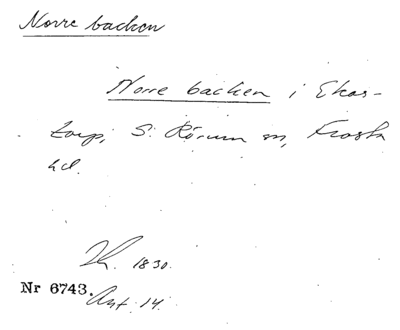 Norre backen
Norre backen i Ekas-
torp, S. Rörum sn, Frosta
hd.
1830.
Nr 6743. Ant. 14.